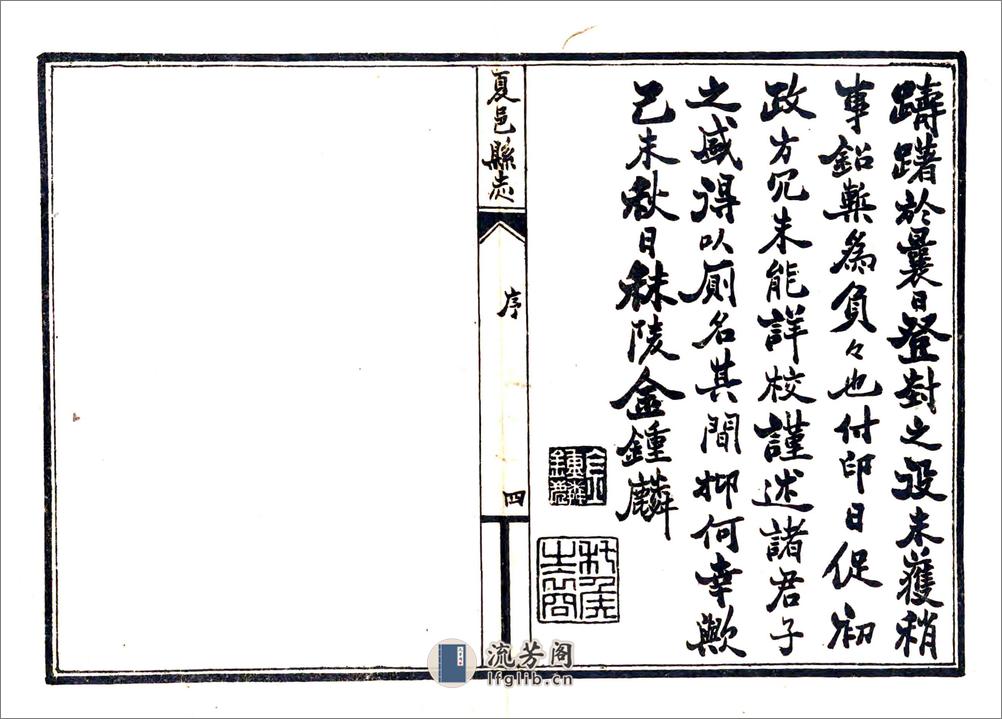 躊躇於曩日登封之役未獲稍
事鉛槧爲負々也付印日促初
政方冗未能詳校謹述諸君子
之盛得以厠名其間抑何幸歟
己未秋日秣陵金鍾麟
夏邑縣志
序
四
流芳阁
lfglib.cn